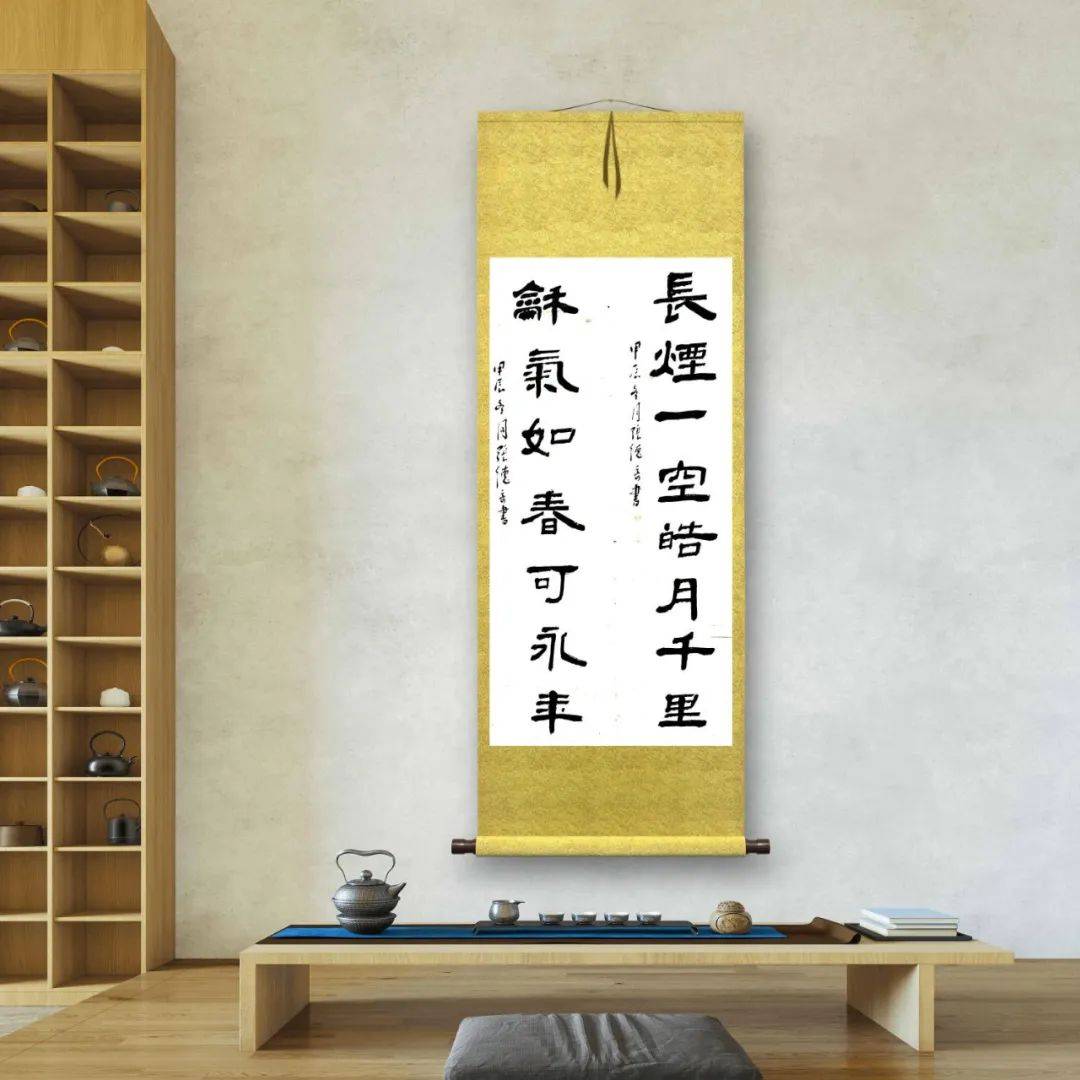 長煙一空皓月千里
甲辰冬月張德書
龢氣如春可永年
甲辰冬月張德書